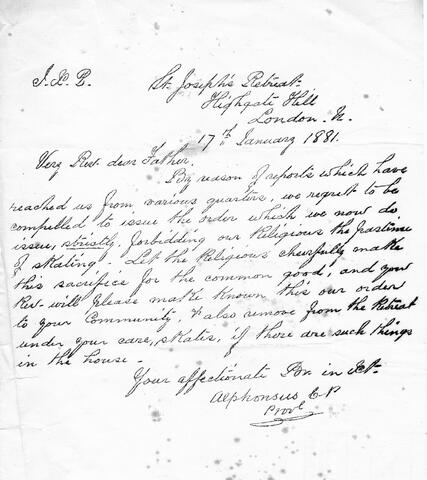 J. X. P. St. Joseph's Retreat
Highgate Hill
London. N.
17th January 1881.
Very Rev. dear Father,
By reason of reports which have
reached us from various quarters, we regret to be
compelled to issue the order which we now do
issue, strictly forbidding our Religious the pastime
of skating. Let the Religious cheerfully make
this sacrifice for the common good, and your
Rev. will please make known this our order
to your Community, & also remove from the Retreat
under your care, skates, if there are such things
in the house -
Your affectionate in Xt.
Alphonsus C.P.
Provl